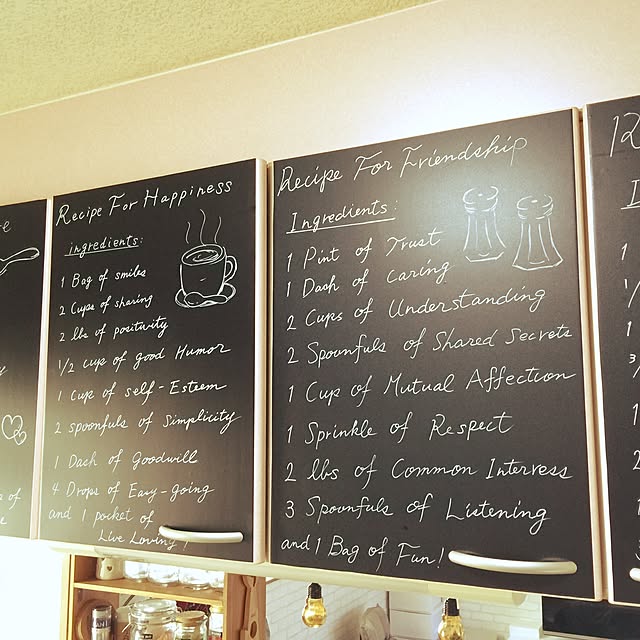 Recipe For Happiness
ingredients:
1 Bag of smiles
2 Cups of sharing
2 lbs of positivity
1/2 cup of good Humor
1 cup of self-Esteem
2 spoonfuls of Simplicity
1 Dash of Goodwill
4 Drops of Easy-going
and 1 pocket of
Live Loving!
Recipe For Friendship
Ingredients:
1 Pint of Trust
1 Dash of Caring
2 Cups of Understanding
2 Spoonfuls of Shared Secrets
1 Cup of Mutual Affection
1 Sprinkle of Respect
2 lbs of Common Interess
3 Spoonfuls of Listening
and 1 Bag of Fun!